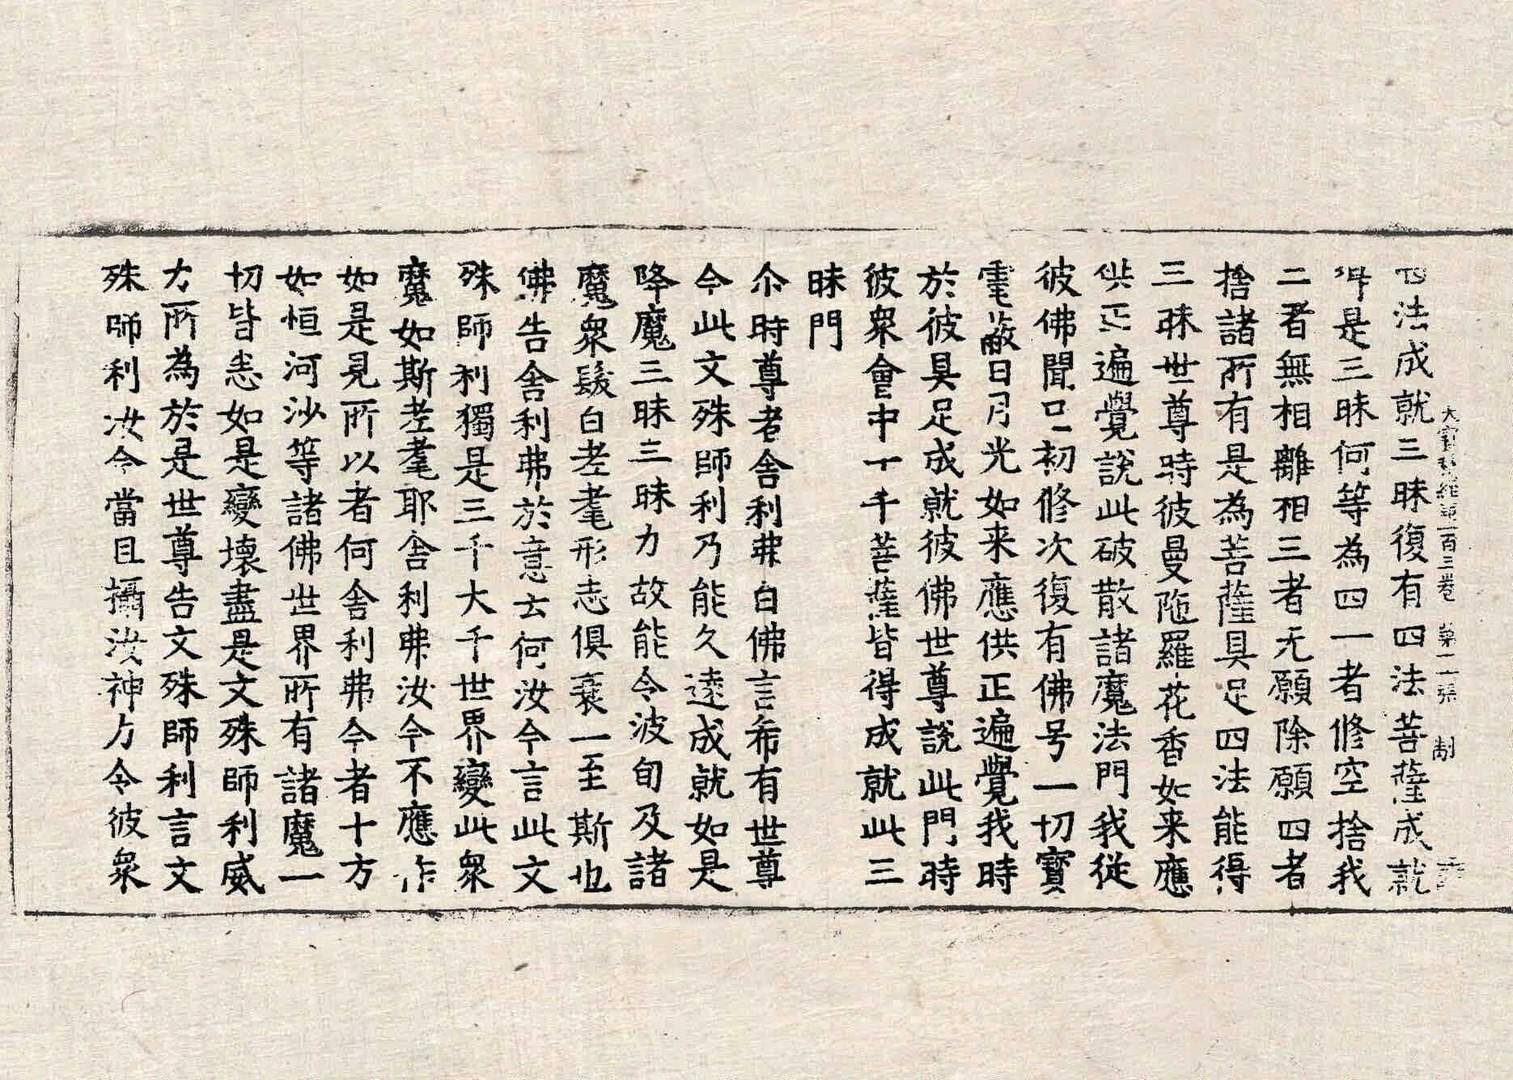 大寶積經第一百三卷 第十一張 制
四法成就三昧復有四法菩薩成就
得是三昧何等為四一者修空捨我
二者無相離相三者无願除願四者
捨諸所有是為菩薩具足四法能得
三昧世尊時彼曼陁羅花香如来應
供正遍覺說此破散諸魔法門我從
彼佛聞已初修次復有佛号一切寶
電蔽日月光如来應供正遍覺我時
於彼具足成就彼佛世尊說此門時
彼衆會中十千菩薩皆得成就此三
昧門
尒時尊者舎利弗白佛言希有世尊
今此文殊師利乃能久遠成就如是
降魔三昧三昧力故能令波旬及諸
魔衆鬚白老耄形志俱衰一至斯也
佛告舎利弗於意云何汝今言此文
殊師利獨是三千大千世界變此衆
魔如斯老耄耶舎利弗汝今不應作
如是見所以者何舎利弗今者十方
如恒河沙等諸佛世界所有諸魔一
切皆悉如是變壞盡是文殊師利威
力所為於是世尊告文殊師利言文
殊師利汝今當且攝汝神力令彼衆